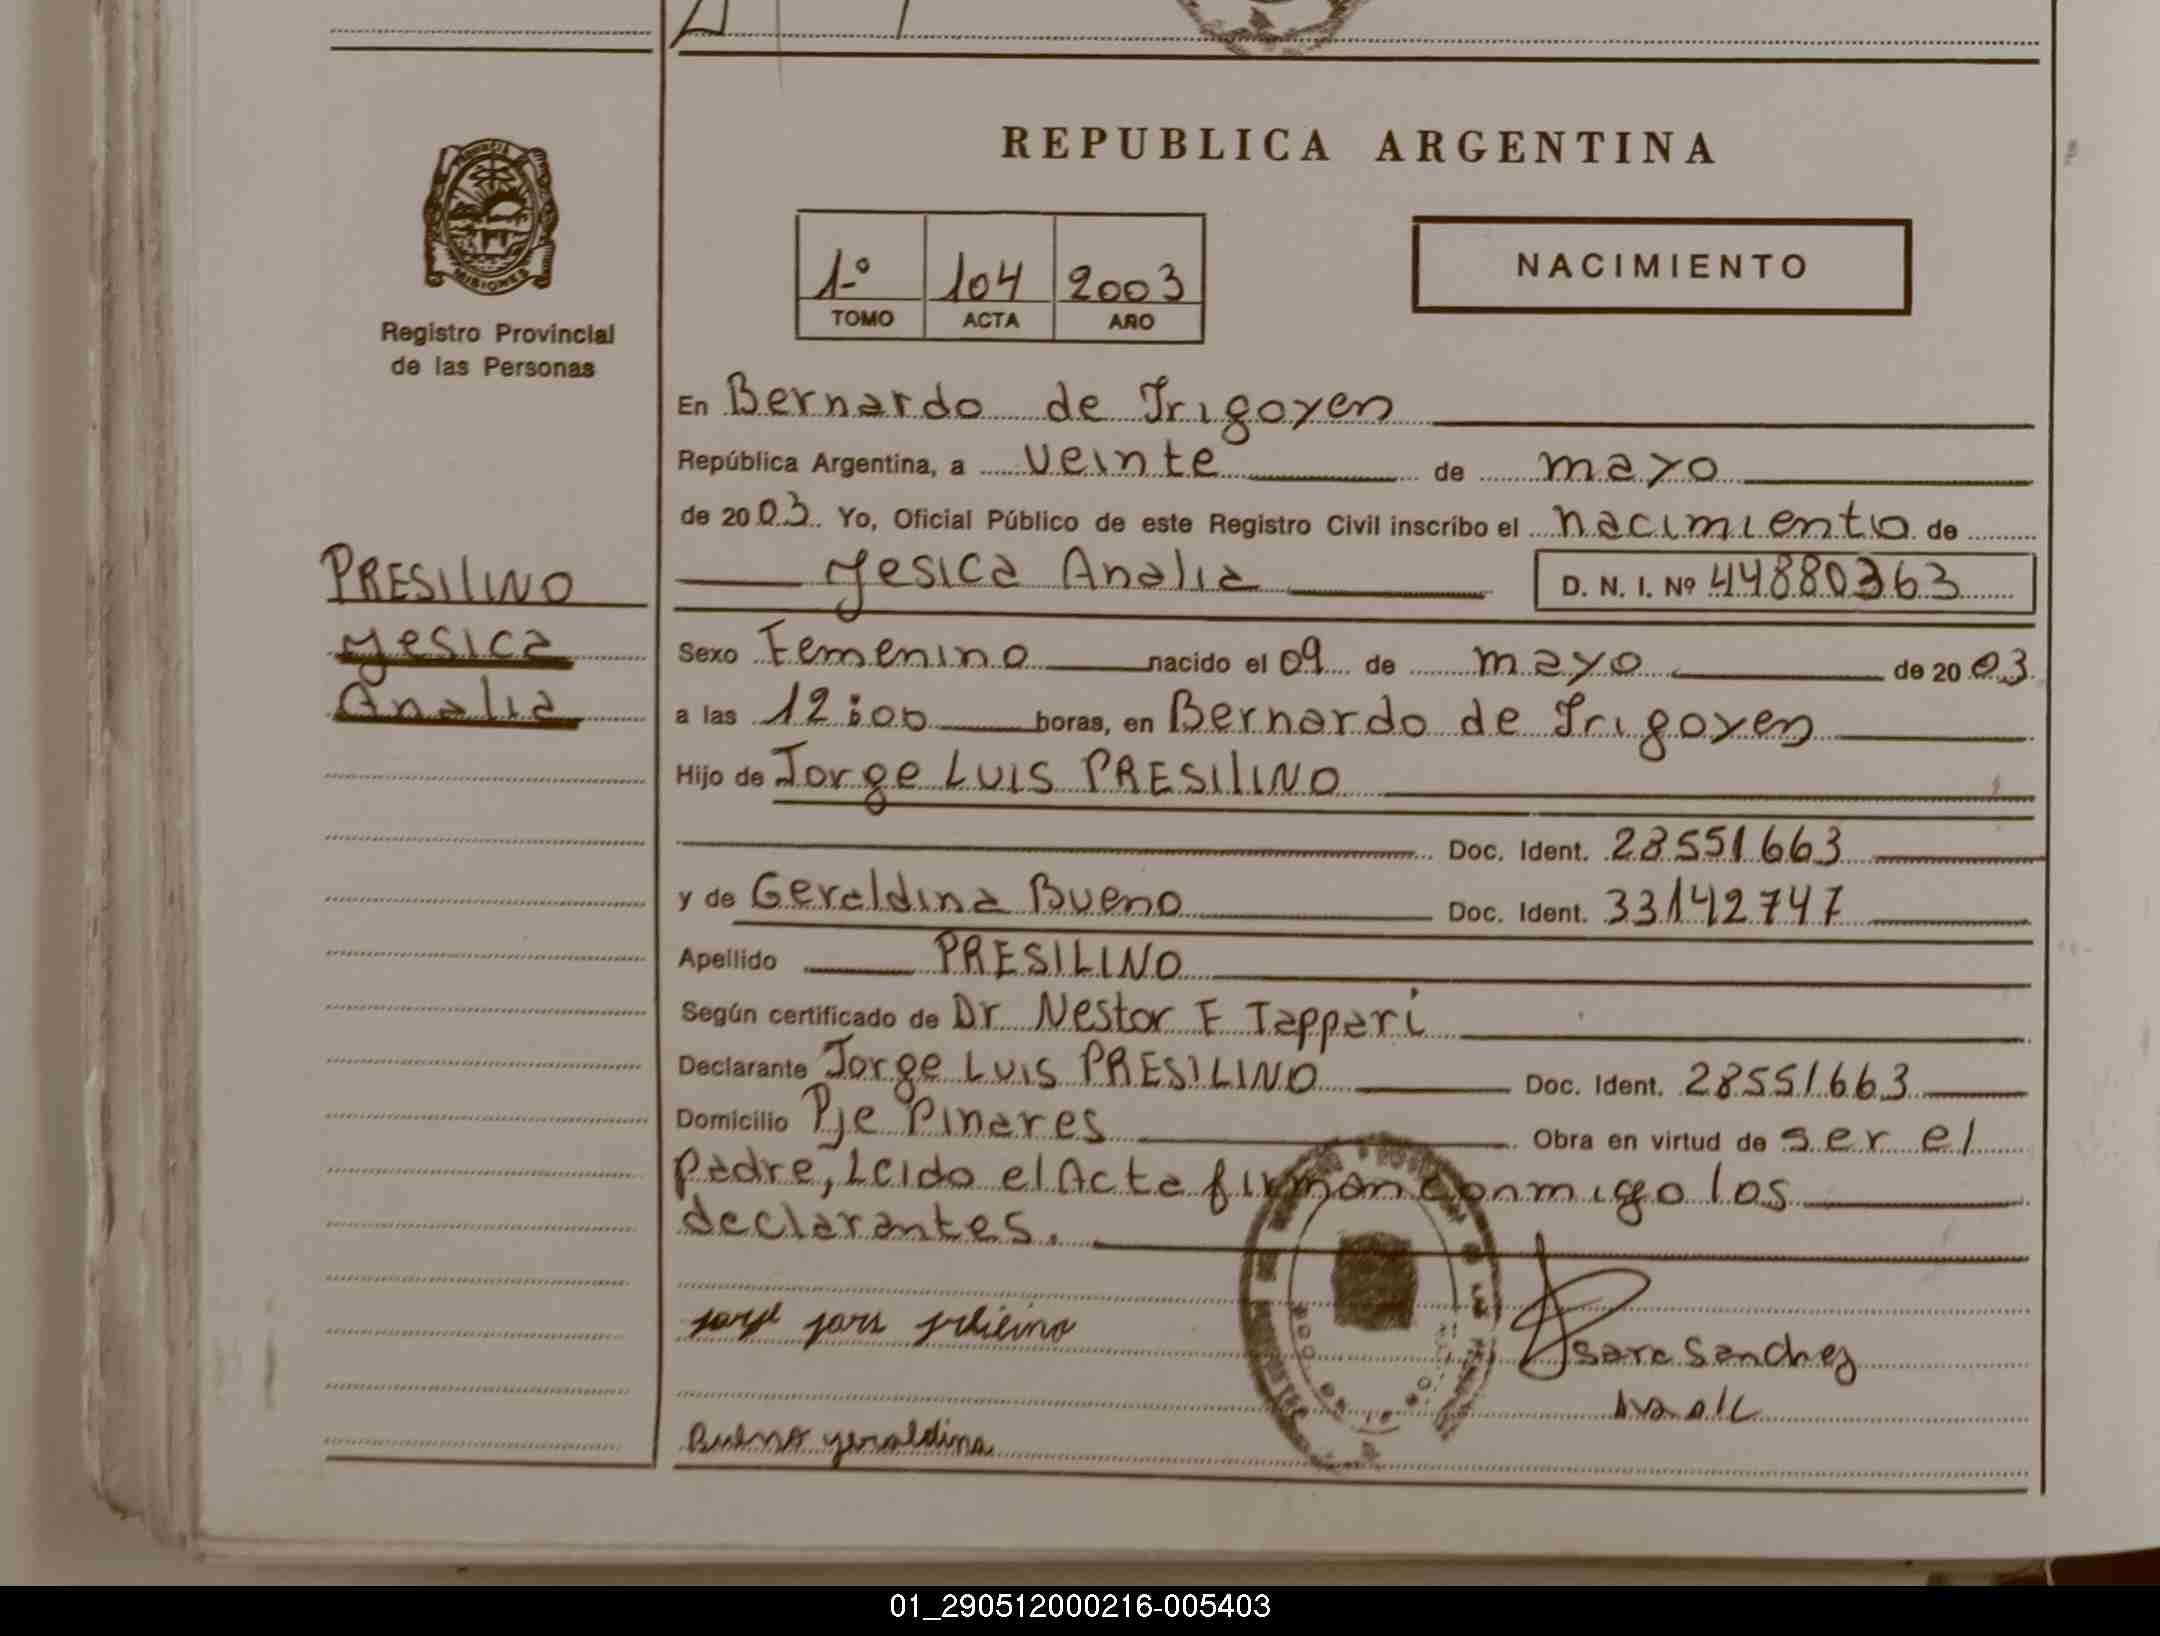 REPUBLICA ARGENTINA
MISIONES
Registro Provincial
de las Personas
1º 104 2003
TOMO ACTA AÑO
NACIMIENTO
En Bernardo de Irigoyen
República Argentina, a veinte de mayo
de 2003 Yo, Oficial Público de este Registro Civil inscribo el nacimiento de
PRESILINO
Yesica
Analia
Yesica Analia D. N. I. Nº 44880363
Sexo Femenino nacido el 09 de mayo de 2003
a las 12:00 horas, en Bernardo de Irigoyen
Hijo de Jorge Luis PRESILINO
Doc. Ident. 28551663
y de Geraldina Bueno Doc. Ident. 33142747
Apellido PRESILINO
Según certificado de Dr Nestor F Tappari
Declarante Jorge Luis PRESILINO Doc. Ident. 28551663
Domicilio Pje Pinares Obra en virtud de ser el
padre, Leido el Acta firman conmigo los
declarantes.
Sara Sanchez
Bueno yeraldina
01_290512000216-005403